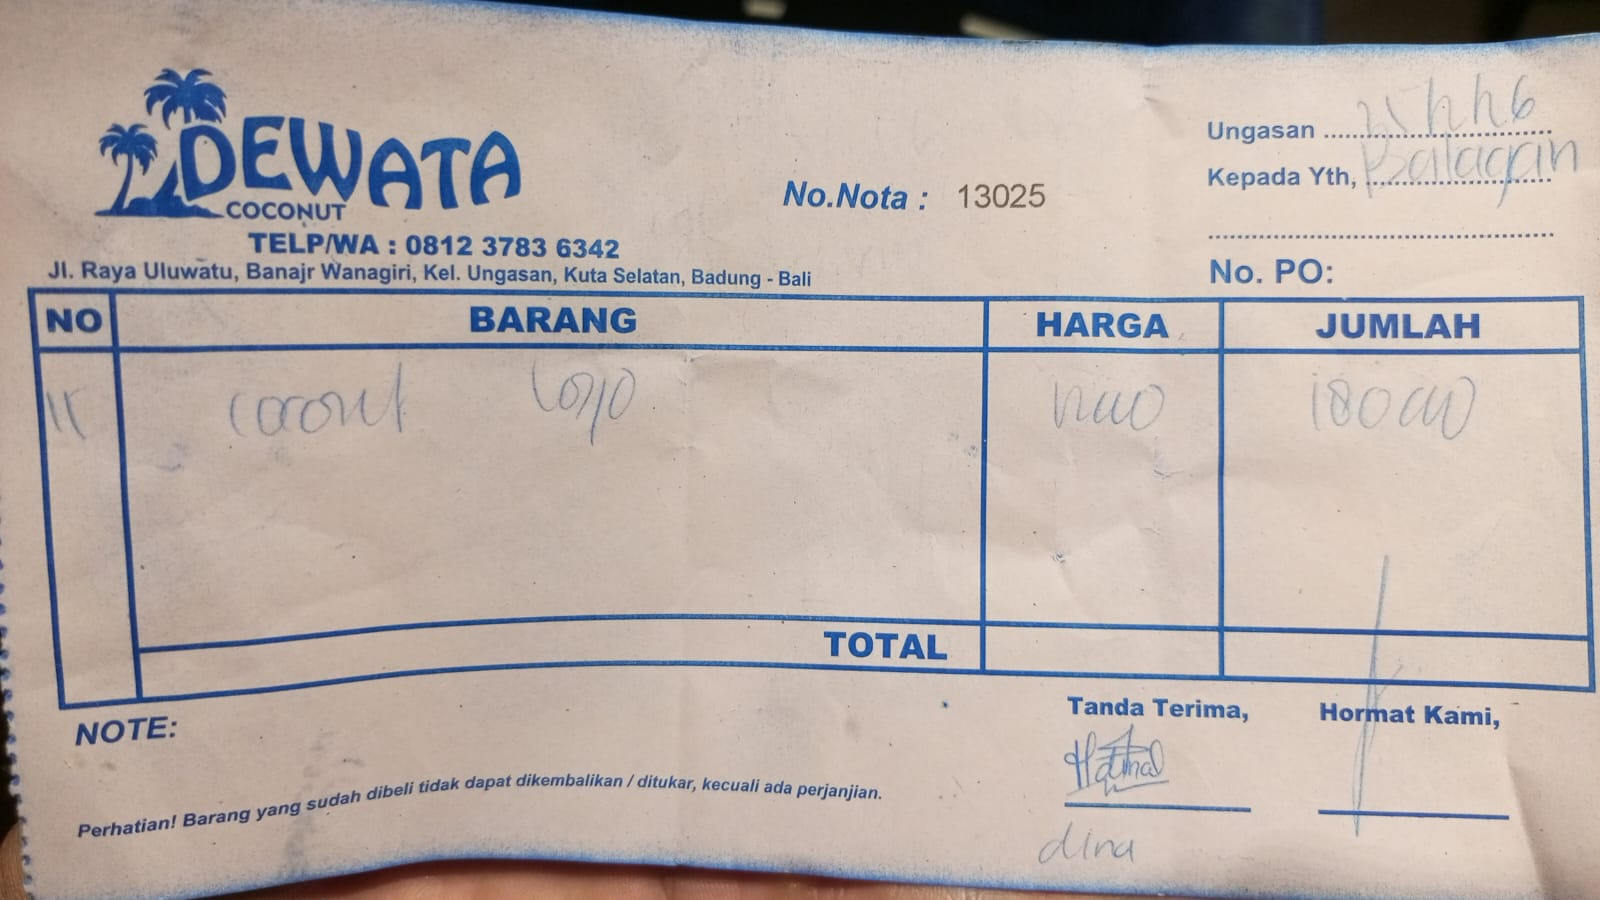 DEWATA
COCONUT
TELP/WA : 0812 3783 6342
Jl. Raya Uluwatu, Banajr Wanagiri, Kel. Ungasan, Kuta Selatan, Badung - Bali
No.Nota : 13025
Ungasan
Kepada Yth,
No. PO:
NO BARANG HARGA JUMLAH
coconut logo 180000
TOTAL
NOTE:
Perhatian! Barang yang sudah dibeli tidak dapat dikembalikan / ditukar, kecuali ada perjanjian.
Tanda Terima,
dina
Hormat Kami,